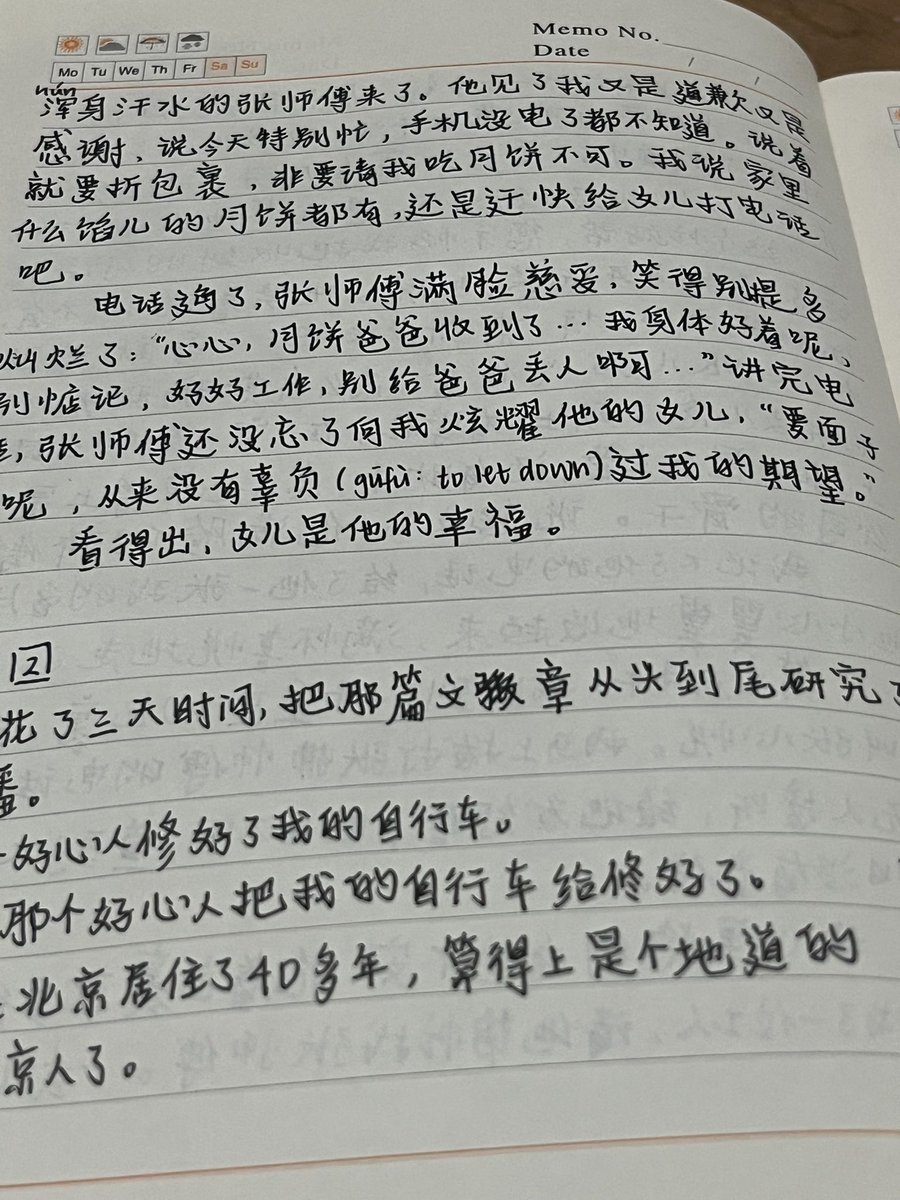 Memo No.
Date / /
Mo Tu We Th Fr Sa Su
hún
浑身汗水的张师傅来了。他见了我又是道歉又是
感谢，说今天特别忙，手机没电了都不知道。说着
就要拆包裹，非要请我吃月饼不可。我说家里
什么馅儿的月饼都有，还是赶快给女儿打电话
吧。
电话通了，张师傅满脸慈爱，笑得别提多
灿烂了："心心，月饼爸爸收到了…我身体好着呢，
别惦记，好好工作，别给爸爸丢人啊…"讲完电
张师傅还没忘了向我炫耀他的女儿，"要面子
呢，从来没有辜负(gūfù: to let down)过我的期望。"
看得出，女儿是他的幸福。
12
花了三天时间，把那篇文章从头到尾研究了
番。
好心人修好了我的自行车。
那个好心人把我的自行车给修好了。
北京居住了40多年，算得上是个地道的
京人了。